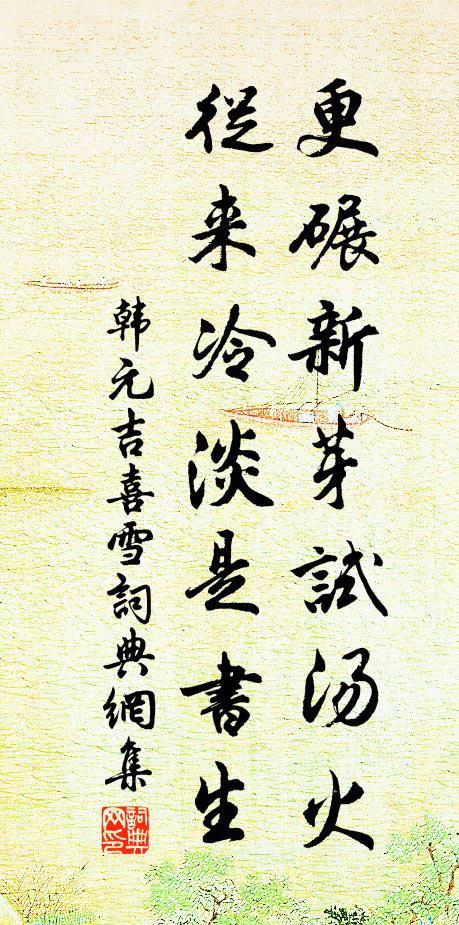 更碾新芽試汤火
從来冷淡是書生
韩元吉喜雪詞典網集
詞典網印